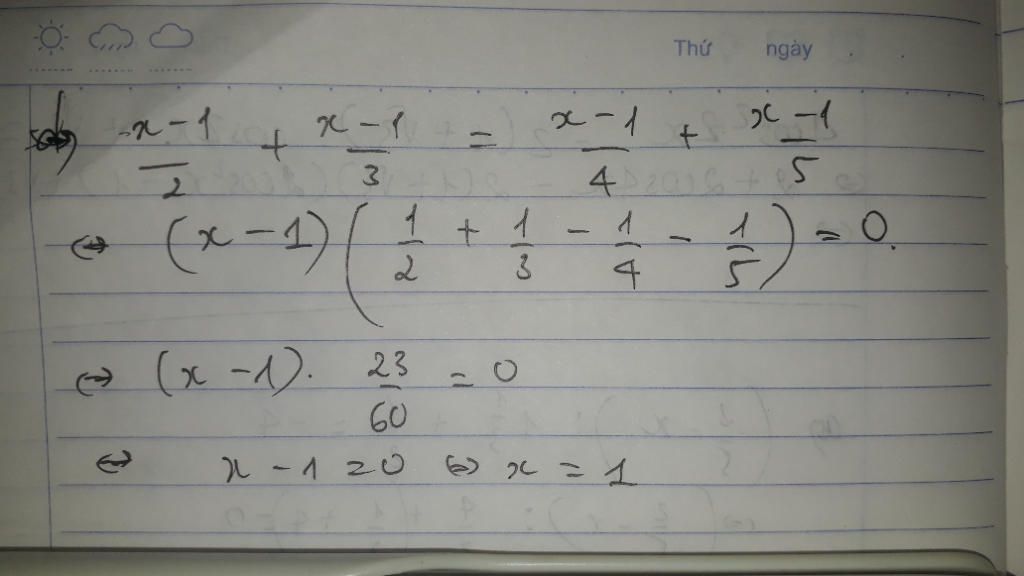 Thứ ngày
x-1/2 + x-1/3 = x-1/4 + x-1/5
⇔ (x-1)(1/2 + 1/3 - 1/4 - 1/5) = 0.
⇔ (x-1). 23/60 = 0
⇔ x-1=0 ⇔ x=1